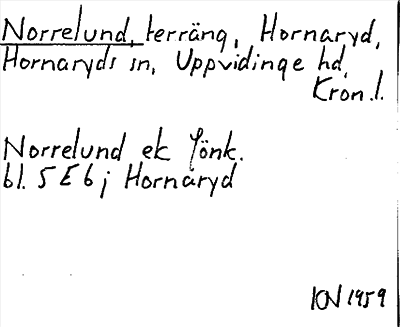 Norrelund, terräng, Hornaryd,
Hornaryds sn, Uppvidinge hd,
Kron.l.
Norrelund ek Jönk.
bl. 5 E 6 j Hornaryd
KN 1959